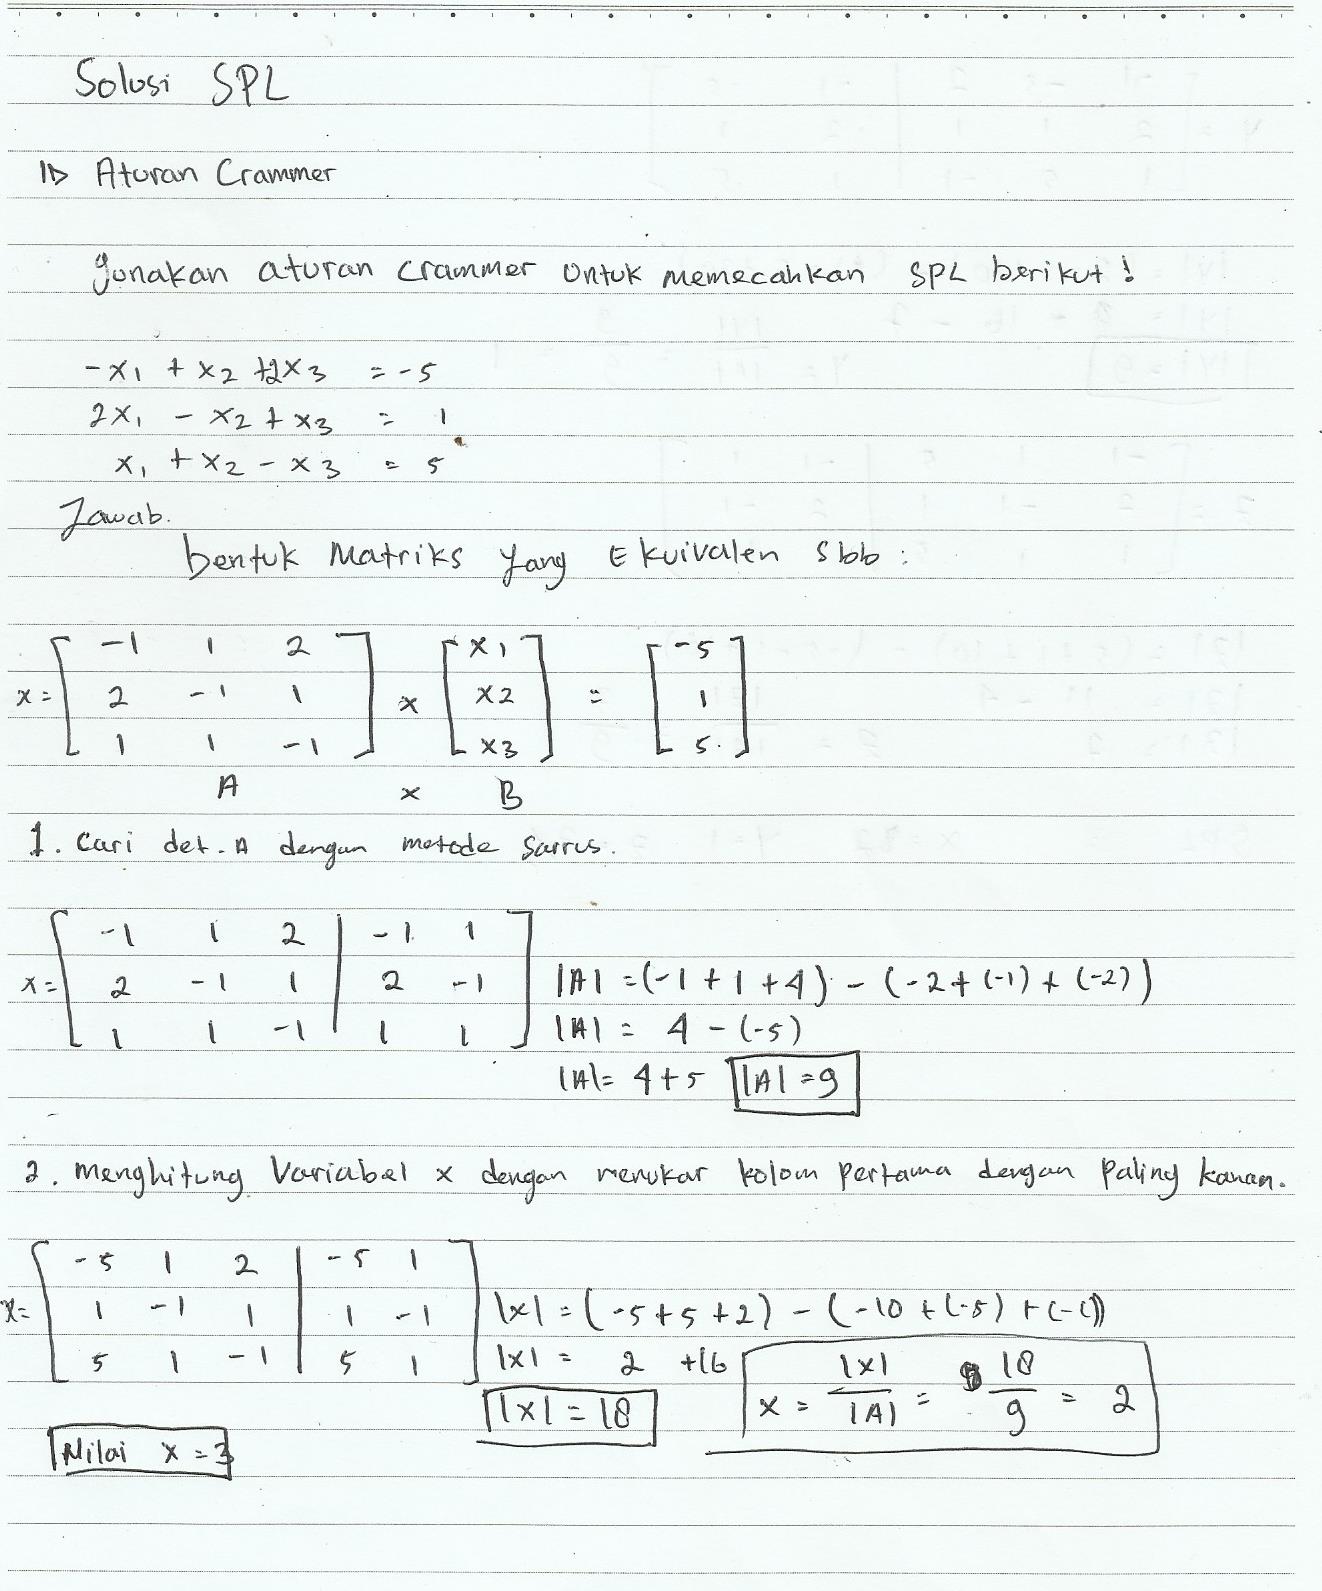 Solusi SPL
1▷ Aturan Crammer
gunakan aturan crammer untuk memecahkan SPL berikut !
-x1 + x2 +2x3 = -5
2x1 - x2 + x3 = 1
x1 + x2 - x3 = 5
Jawab.
bentuk Matriks yang Ekuivalen sbb :
-1 1 2 x1 -5
x= 2 -1 1 x x2 = 1
1 1 -1 x3 5.
A x B
1. Cari det. A dengan metode Sarrus.
-1 1 2 | -1 1
x= 2 -1 1 | 2 -1 |A| = (-1 + 1 + 4) - (-2 + (-1) + (-2))
1 1 -1 | 1 1 |A| = 4 - (-5)
|A| = 4+5 |A| = 9
2. menghitung Variabel x dengan menukar kolom pertama dengan paling kanan.
-5 1 2 | -5 1
x= 1 -1 1 | 1 -1 |x| = (-5 + 5 + 2) - (-10 + (-5) + (-1))
5 1 -1 | 5 1 |x| = 2 +16
|x| = 18 x = |x|/|A| = 18/9 = 2
Nilai x = 3